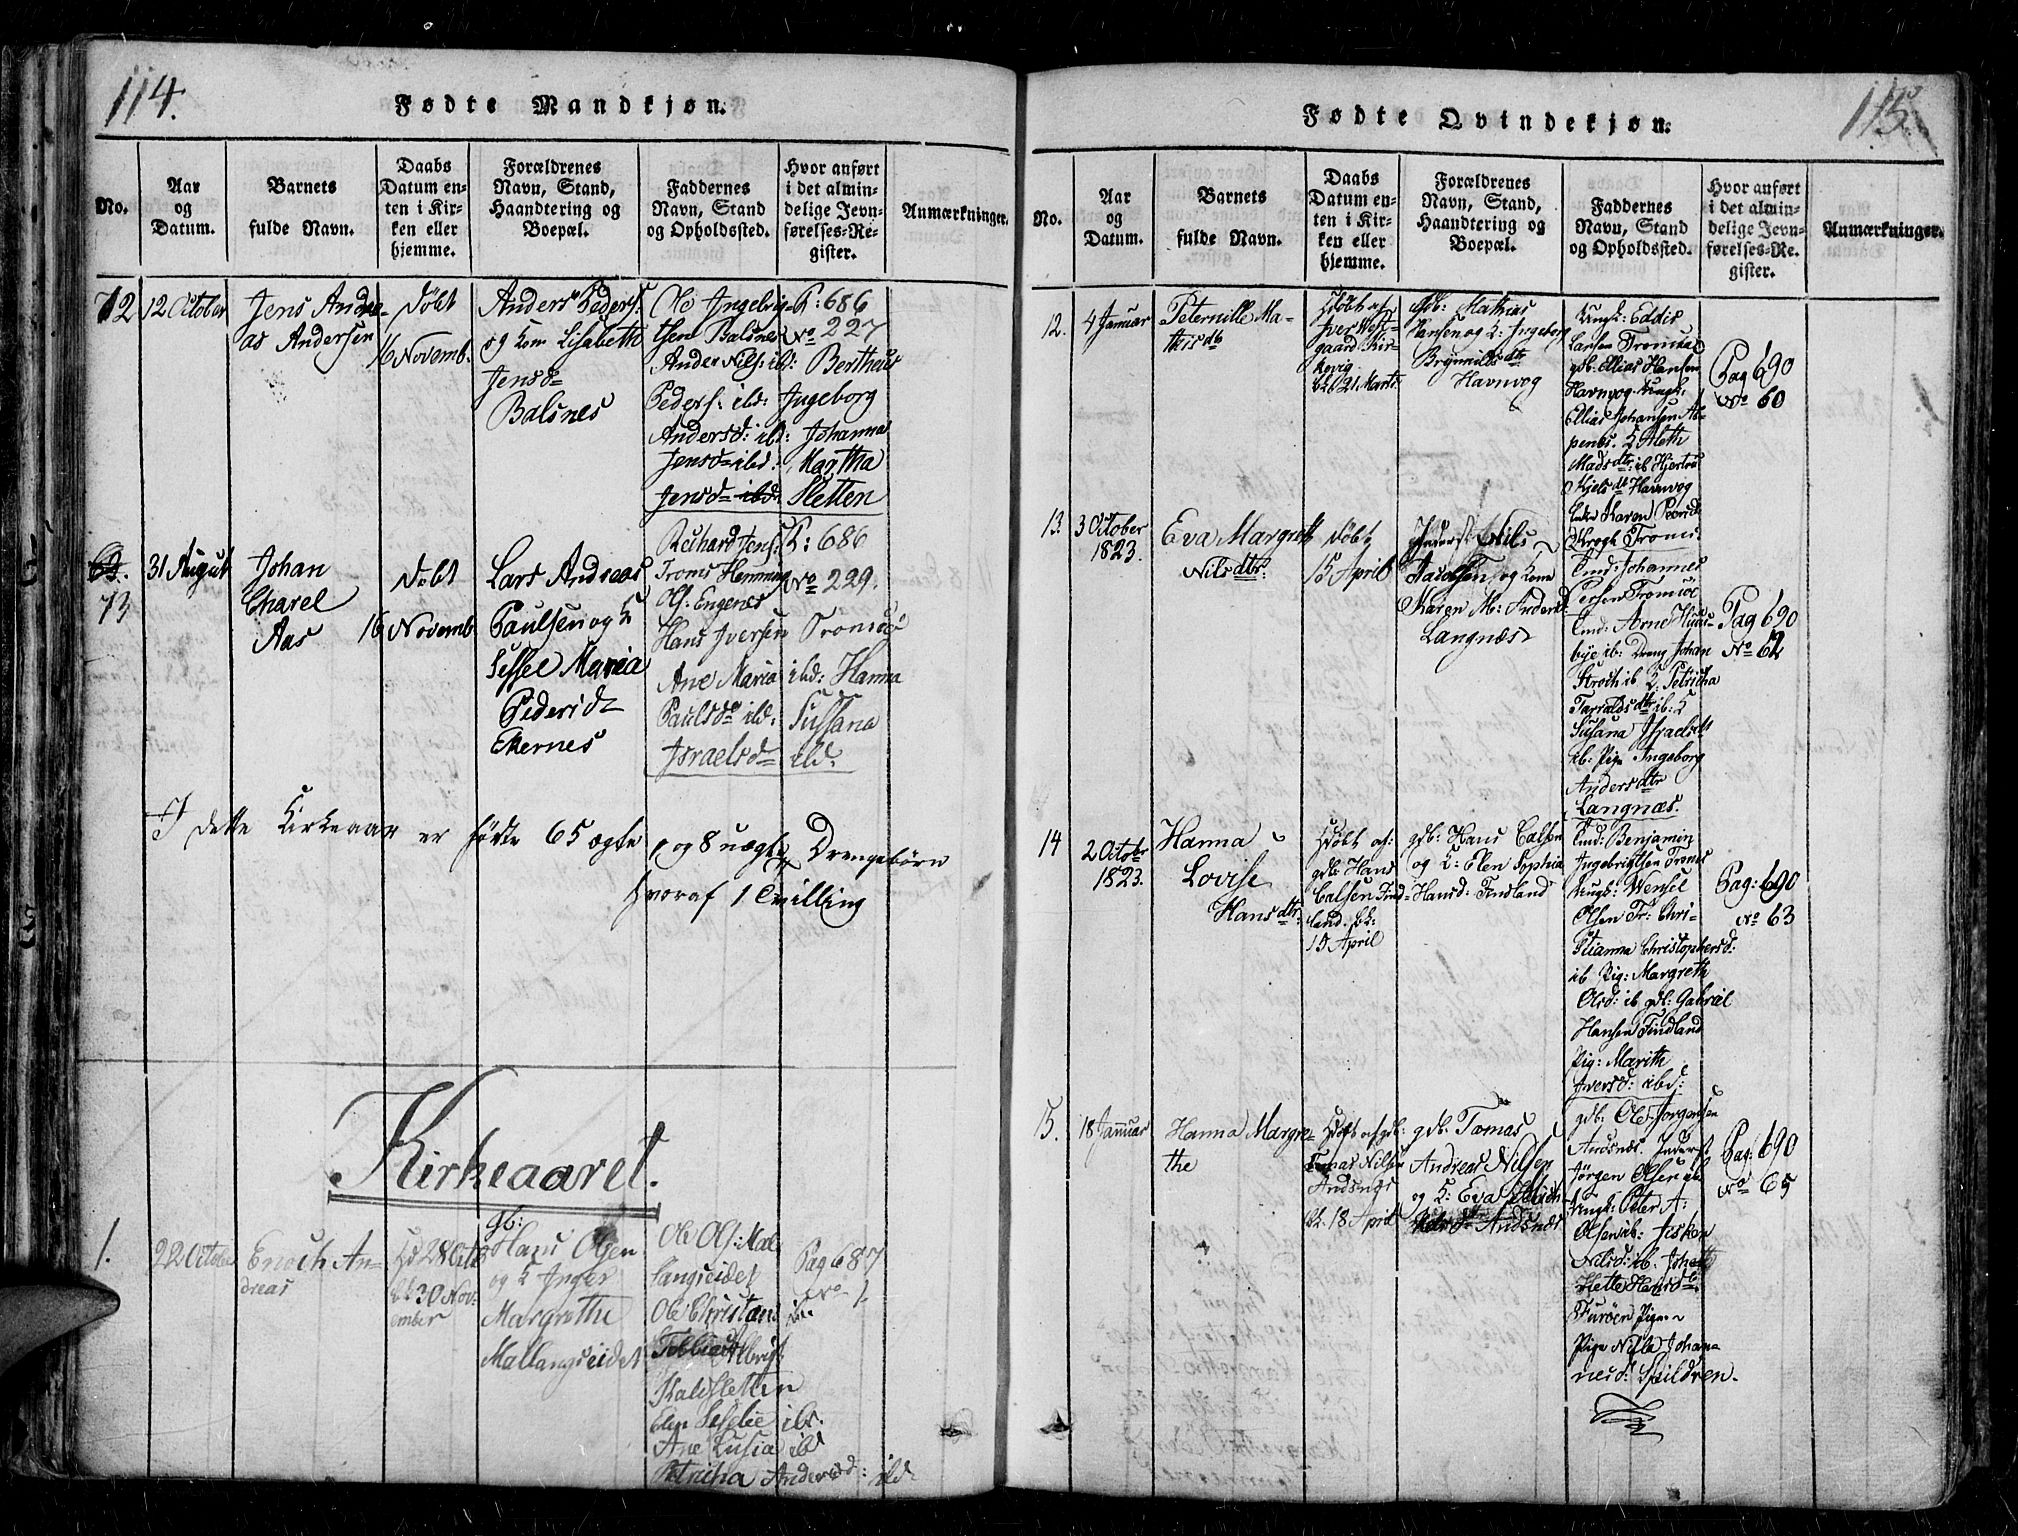 114.
Fødte Mandkjøn.
No.
Aar
og
Datum.
Barnets
fulde Navn.
Daabs
Datum en-
ten i Kir-
ken eller
hjemme.
Forældrenes
Navn, Stand,
Haandtering og
Boepæl.
Faddernes
Navn, Stand
og Opholdssted.
Hvor anført
i det almin-
delige Jevn-
førelses-Re-
gister.
Anmærkninger.
72
12 October
Jens Andre-
as Andersen
døbt
16 Novemb.
Anders Peders:
og Kone Lisabeth
Jensd=
Balsnes
Ole Ingebrig-
tsen Balsnes
Ander Nils: ib: Bertheus
Peders: ibd: Ingeborg
Andersd: ibd: Johanna
Jensd= ibd: Martha
Jensd= ibd: Sletten
P: 686
No 227
73
31 August
Johan
Charel
Aas
Døbt
16 Novemb
Lars Andreas
Paulsen og K
Sessel Maria
Pedersd=
Ekernes
Reichard Jens:
Troms Hemming
Ols: Engenes
Hans Iversen Tromsöe
Ane Maria ibd: Hanna
Paulsd= ibd: Sussana
Israelsd= ibd.
P: 686
No 229.
I dette Kirkeaar er födte 65 ægte og 8 uægte Drengebörn
hvoraf 1 Tvilling
Kirkeaaret.
1.
22 October
Enoch An-
dreas
Hd 28 Octb
bk 30 Nov-
ember
gb:
Hans Olsen
og K Inger
Margrethe
Mallangseidet
Ole Ols: Mal
langseidet
Ole Christian ibd
Albrigt
Kaldsletten
Elen Sesselie ibd.
Ane Lusia ibd
Petricha Andersd: ibd.
Pag 687
No 1.
115.
Fødte Qvindekjøn.
No.
Aar
og
Datum.
Barnets
fulde Navn.
Daabs
Datum en-
ten i Kir-
ken eller
hjemme.
Forældrenes
Navn, Stand,
Haandtering og
Boepæl.
Faddernes
Navn, Stand
og Opholdssted.
Hvor anført
i det almin-
delige Jevn-
førelses-Re-
gister.
Anmærkninger.
12.
4 Januar
Peternille Ma-
thisdtr
Hdöbt af
Iver West-
gaard Kir-
kevig
bk: 21 Marts
gdb: Mathias
Hansen og K: Ingeborg
Brynnildsdtr
Havnvog
Ungk: Eddis
Larsen Tromsdal
gdb: Ellias Hansen
Havnvog. Ungk:
Ellias Johansen As-
penes. K Aleth
Madsdtr: ib Hjertrü
Kjelsdtr Havnvog
Pag 690
No 60
13.
3 October
1823.
Eva Margreth
Nilsdtr:
döbt
15 April
Inders: Nils
og Kone
Maren M: Andersd:
Langnæs
Krogh Troms:
Inds: Johannes
Persen Tromsöe
Arne Huus-
bye ib: Dreng Johan
Stroch ib K: Petricha
Tarraldsdtr ib: K
Susana Israelsdtr
ib: Pige Ingeborg
Andersdtr
Langnæs.
Pag 690
No 62
14
2 Octobr
1823.
Hanna
Lovise
Hansdtr:
Hdöbt af:
gdb: Hans
Calsen Find-
land. bk:
15 April
gdb: Hans Calsen
og K: Elen Sophia
Hansd: Findland
Ind: Benjamin
Ingebrigtsen Troms
Ungk: Wensel
Olsen Tr: Chri-
stianna Christophersd:
ib Pig: Margreth
Olsd: ib gdb: Gabriel
Hansen Findland
Pig: Marithe
Iversd: ibd:
Pag: 690
No 63
15.
18 Januar
Hanna Margre-
the
Hdöbt af gdb:
Tomas Nilsen
Andsnæs
bk. 18 April
gdb. Tomas
Andreas Nilsen
og K: Eva
Andsnæs
gdb: Ole Jörgensen
Andsnæs. Inderst
Jörgen Olsen ib
Ungk: Peter A:
Olsen ib: Jisken
Nilsd: ib. Johan
Mette Hansdtr
Furöen Pige
Pige Nilla Johana
nesd: Spildren.
Pag: 690
No 65